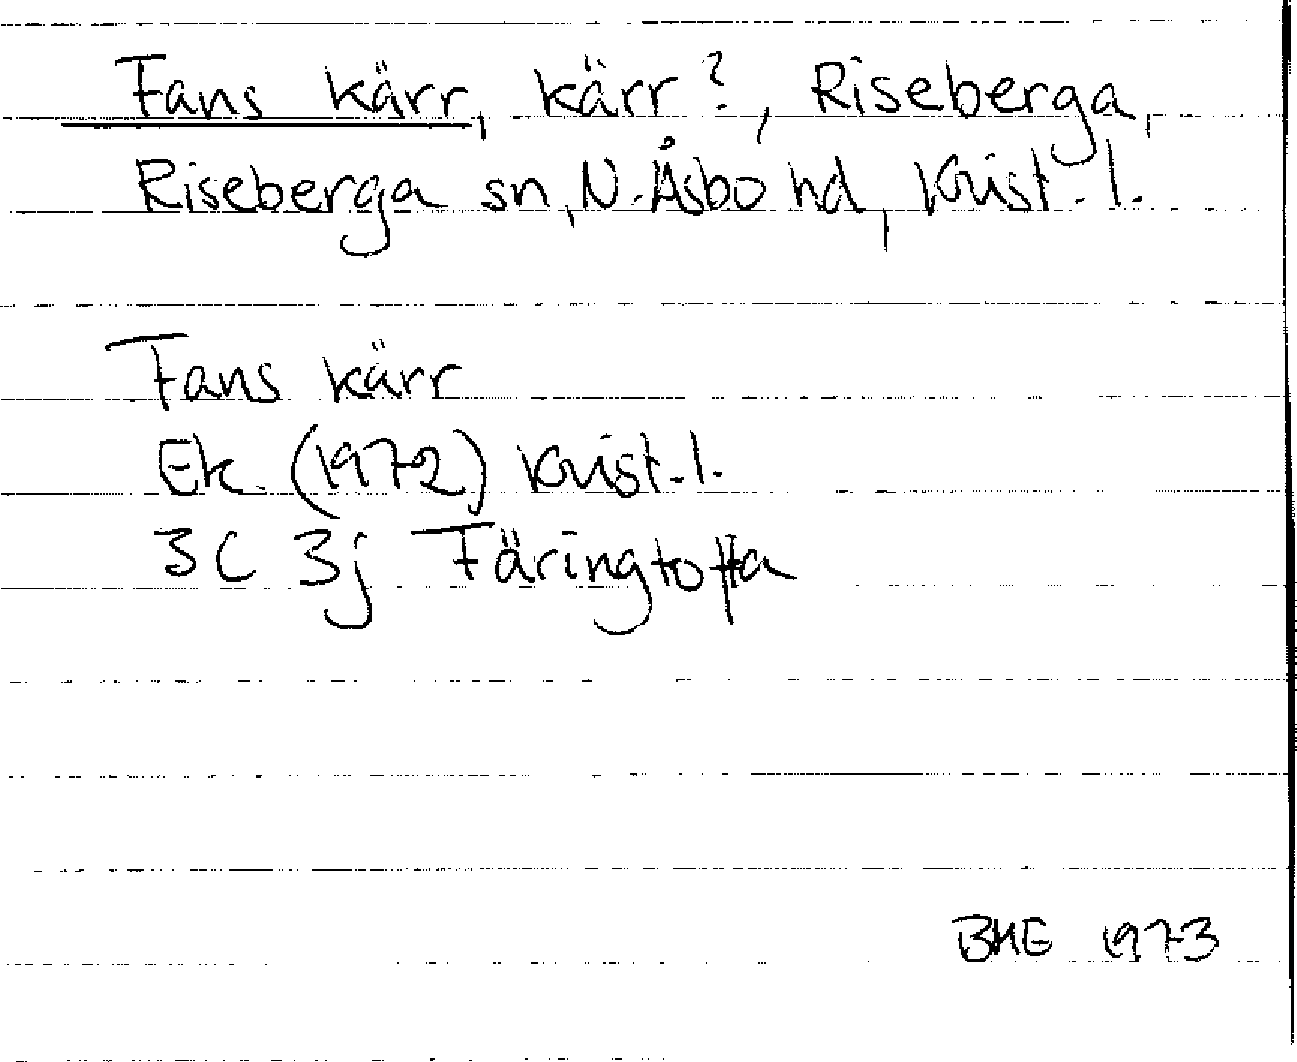 Fans kärr, kärr?, Riseberga,
Riseberga sn, N. Åsbo hd, Krist. l.
Fans kärr
Ek. (1972) Krist. l.
3C 3j Färingtofta
BHE 1973